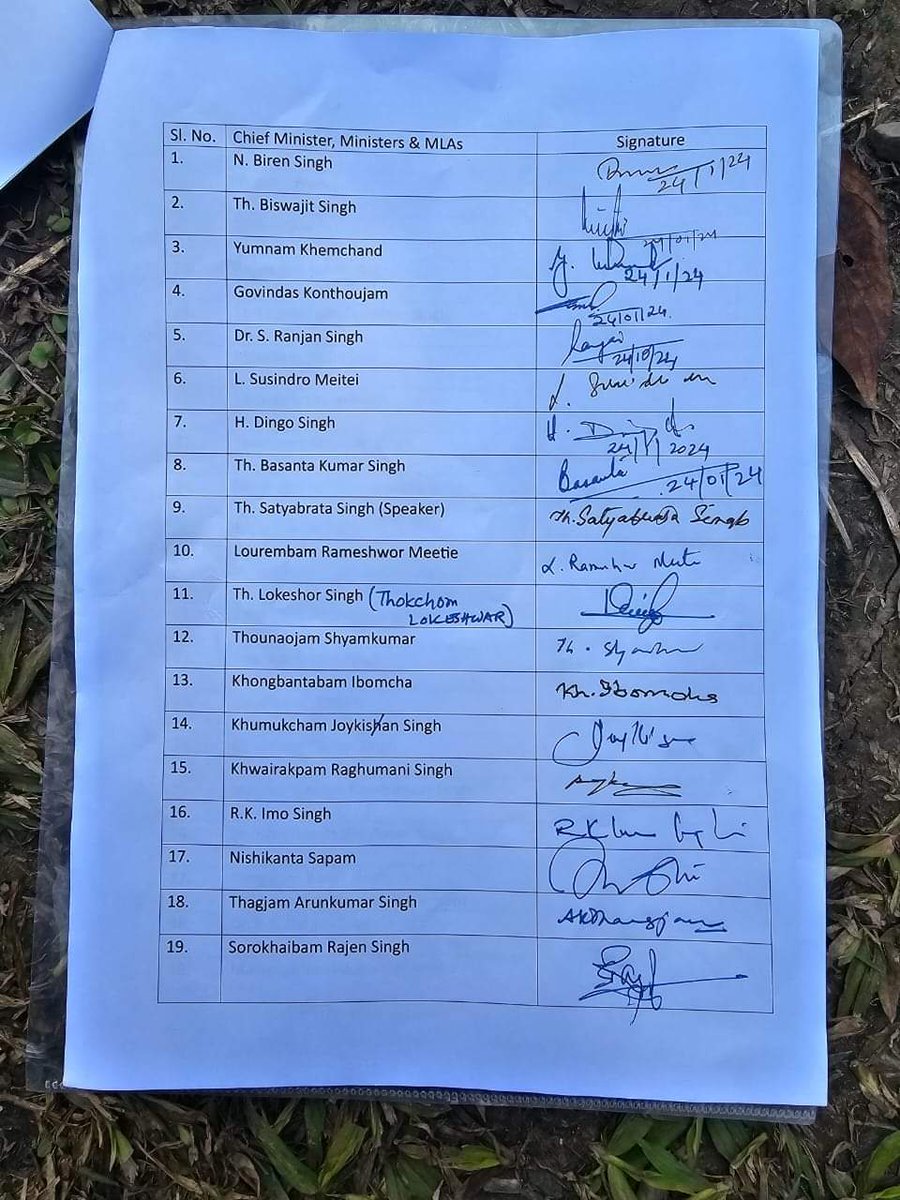 Sl. No. Chief Minister, Ministers & MLAs Signature
1. N. Biren Singh
24/1/24
2. Th. Biswajit Singh
24/01/24
3. Yumnam Khemchand Y.
24/1/24
4. Govindas Konthoujam
24/01/24.
5. Dr. S. Ranjan Singh
6. L. Susindro Meitei L.
7. H. Dingo Singh H.
2024
8. Th. Basanta Kumar Singh Basanta 24/01/24
9. Th. Satyabrata Singh (Speaker) Th. Satyabrata Singh
10. Lourembam Rameshwor Meetie L.
11. Th. Lokeshor Singh (Thokchom
LOKESHWAR)
12. Thounaojam Shyamkumar Th.
13. Khongbantabam Ibomcha Kh. Ibomcha
14. Khumukcham Joykishan Singh
15. Khwairakpam Raghumani Singh
16. R.K. Imo Singh RK
17. Nishikanta Sapam
18. Thagjam Arunkumar Singh
19. Sorokhaibam Rajen Singh